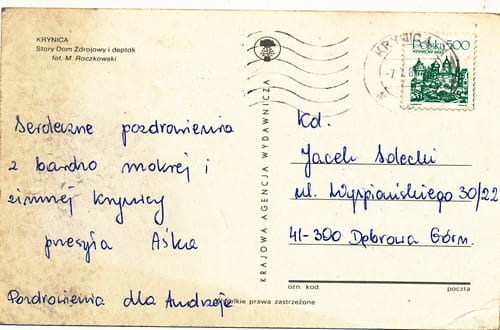 KRYNICA
Stary Dom Zdrojowy i deptak
fot. M. Raczkowski
Serdeczne pozdrowienia
z bardzo mokrej i
zimnej Krynicy
przesyła Aśka
Pozdrowienia dla Andrzeja
KRAJOWA AGENCJA WYDAWNICZA
KRYNICA
Polska 500
Kol.
Jacek Solecki
ul. Wyspiańskiego 30/22
41-300 Dąbrowa Górn.
ozn. kod. poczta
wszelkie prawa zastrzeżone